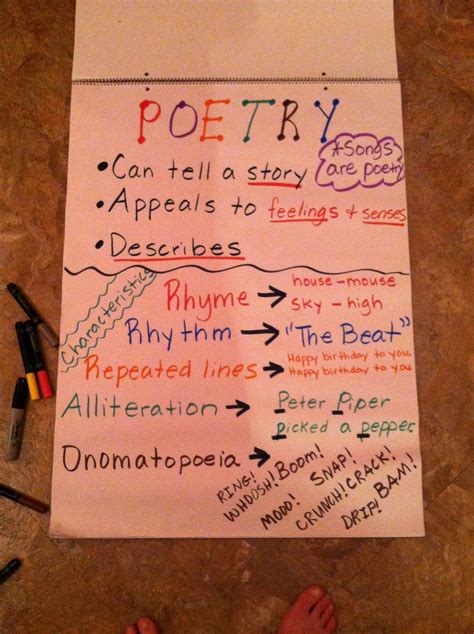 POETRY
*Songs
are poetry
•Can tell a story
•Appeals to feelings & senses
•Describes
Characteristics
Rhyme → house-mouse
sky - high
Rhythm → "The Beat"
Repeated lines → Happy birthday to you
Happy birthday to you
Alliteration → Peter Piper
picked a pepper
Onomatopoeia → RING! BOOM! SNAP! CRACK! BAM!
WHOOSH! MOOO! CRUNCH! DRIP!